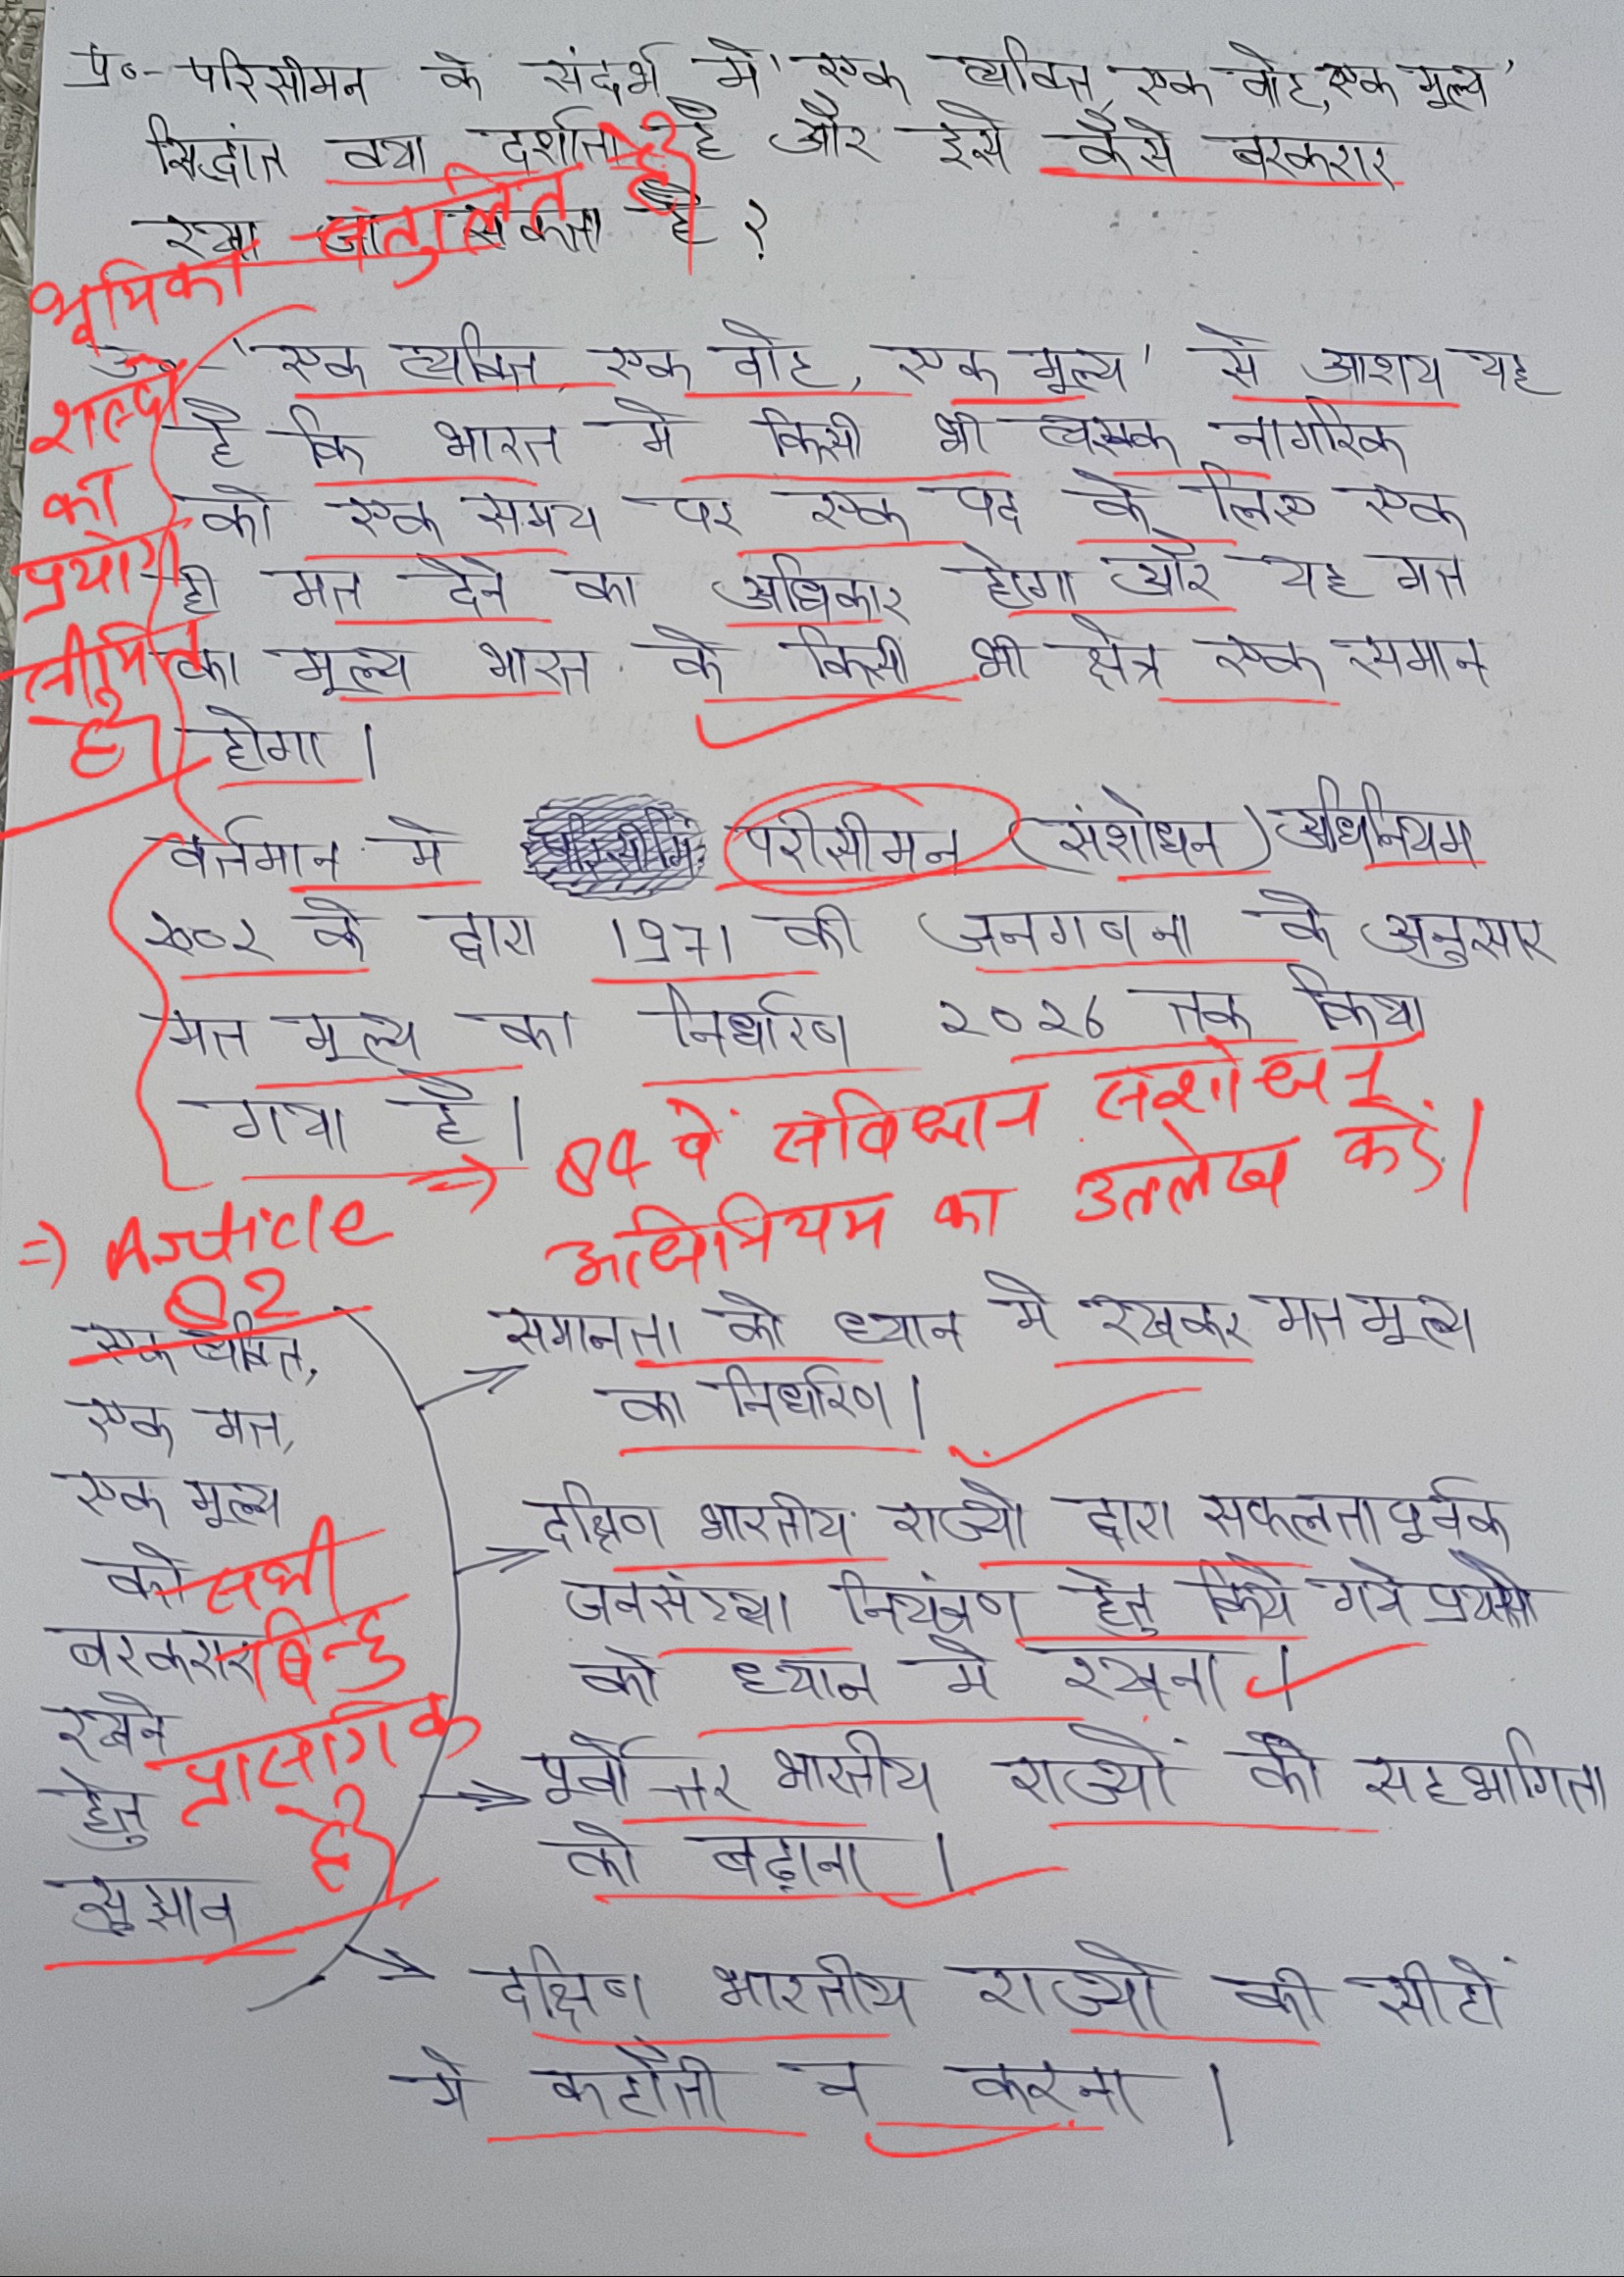 प्र०- परिसीमन के संदर्भ में 'एक व्यक्ति, एक वोट, एक मूल्य'
सिद्धांत क्या दर्शाता है और इसे कैसे बरकरार
रखा जा सकता है ?
भूमिका संतुलित है।
शब्दों
का
प्रयोग
सीमित
है।
उ०- 'एक व्यक्ति, एक वोट, एक मूल्य' से आशय यह
है कि भारत मे किसी भी व्यस्क नागरिक
को एक समय पर एक पद के लिए एक
ही मत देने का अधिकार होगा और यह मत
का मूल्य भारत के किसी भी क्षेत्र एक समान
होगा।
वर्तमान मे परीसीमन (संशोधन) अधिनियम
२००२ के द्वारा 1971 की जनगणना के अनुसार
मत मूल्य का निर्धारण २०२६ तक किया
गया है।
⇒ 84 वें संविधान संशोधन
अधिनियम का उल्लेख करें।
⇒ Article
82
एक व्यक्ति,
एक मत,
एक मूल्य
को
बरकरार
रखने
हेतु
सुझाव
सभी
बिन्दु
प्रासंगिक
है।
→ समानता को ध्यान मे रखकर मत मूल्य
का निर्धारण।
→ दक्षिण भारतीय राज्यो द्वारा सफलतापूर्वक
जनसंख्या नियंत्रण हेतु किये गये प्रयासो
को ध्यान मे रखना।
→ पूर्वोत्तर भारतीय राज्यों की सहभागिता
को बढ़ाना।
→ दक्षिण भारतीय राज्यो की सीटों
मे कटौती न करना।